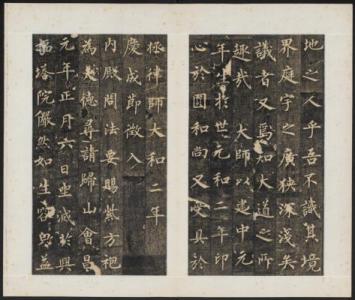 地之人乎吾不識其境
界庭宇之廣狹深淺矣
議者又焉知大道之所
趣哉 大師以建中元
年生於世元和二年印
心於圓和尚又受具於
拯律師大和二年
慶成節徵入
內殿問法要賜紫方袍
為大德尋請歸山會昌
元年正月六日坐滅於興
福塔院儼然如生容皃益